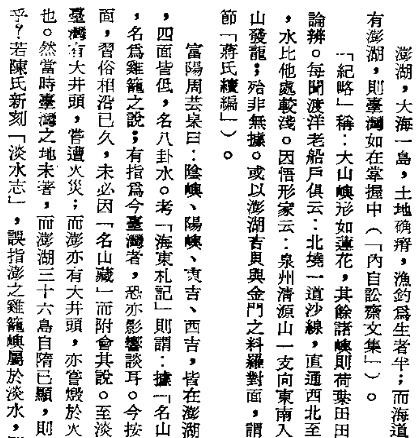 澎湖,大海一島,土地确瘠,漁釣爲生者半;而海道
有澎湖,則臺灣如在掌握中(「內自訟齋文集」)。
「紀略」稱:大山嶼形如蓮花,其餘諸嶼則荷葉田田
論辨。每聞渡洋老船戶俱云:北墝一道沙線,直通西北至
,水比他處較淺。因悟形家云:泉州清源山一支向東南入
山發龍;殆非無據。或以澎湖吉貝與金門之料羅對面,謂
節「蔣氏續編」)。
富陽周芸臯曰:陰嶼、陽嶼、東吉、西吉,皆在澎湖
,四面皆低,名八卦水。考「海東札記」則謂:據「名山
,名爲雞籠之說;有指爲今臺灣者,恐亦影響談耳。今按
面,習俗相沿已久,未必因「名山藏」而附會其說。至淡
臺灣有大井頭,嘗遭火災;而澎亦有大井頭,亦嘗燬於火
也。然當時臺灣之地未著,而澎湖三十六島自隋已顯,則
乎?若陳氏新刻「淡水志」,誤指澎之雞籠嶼屬於淡水,